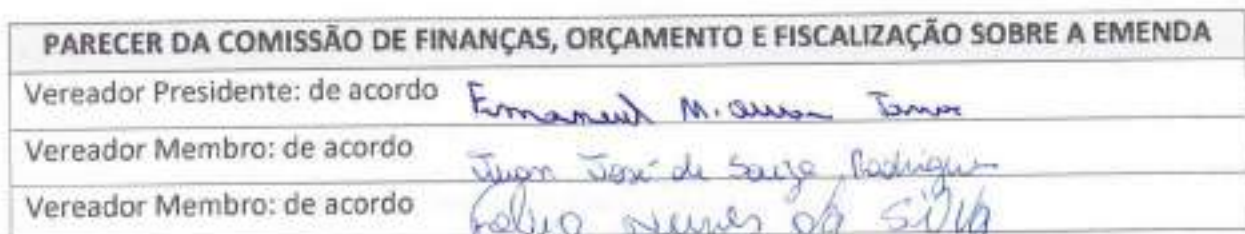 PARECER DA COMISSÃO DE FINANÇAS, ORÇAMENTO E FISCALIZAÇÃO SOBRE A EMENDA
Vereador Presidente: de acordo Emanuel M.
Vereador Membro: de acordo Juan José de Souza Rodrigues
Vereador Membro: de acordo Nunes da Silva